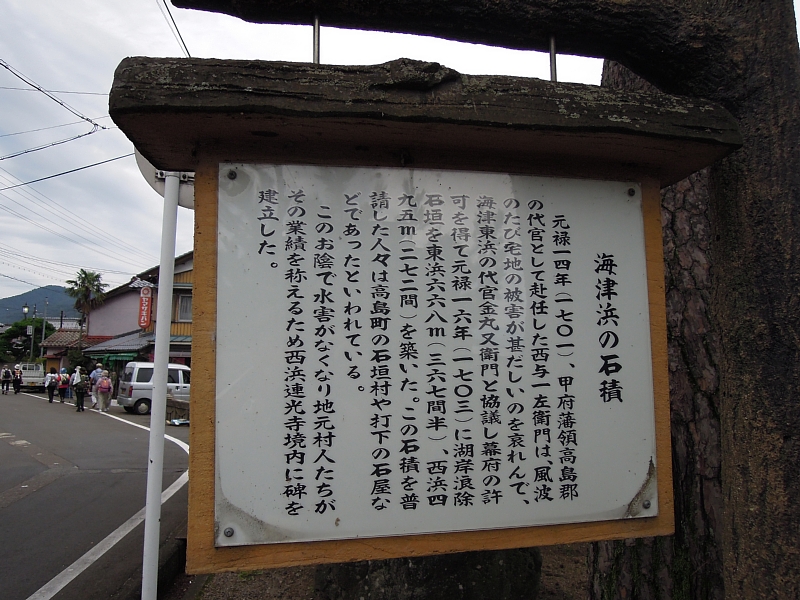 海津浜の石積
元禄一四年(一七〇一)、甲府藩領高島郡
の代官として赴任した西与一左衛門は、風波
のたび宅地の被害が甚だしいのを哀れんで、
海津東浜の代官金丸又衛門と協議し幕府の許
可を得て元禄一六年(一七〇三)に湖岸浪除
石垣を東浜六六八m(三六七間半)、西浜四
九五m(二七二間)を築いた。この石積を普
請した人々は高島町の石垣村や打下の石屋な
どであったといわれている。
このお陰で水害がなくなり地元村人たちが
その業績を称えるため西浜蓮光寺境内に碑を
建立した。
ヤマザキパン